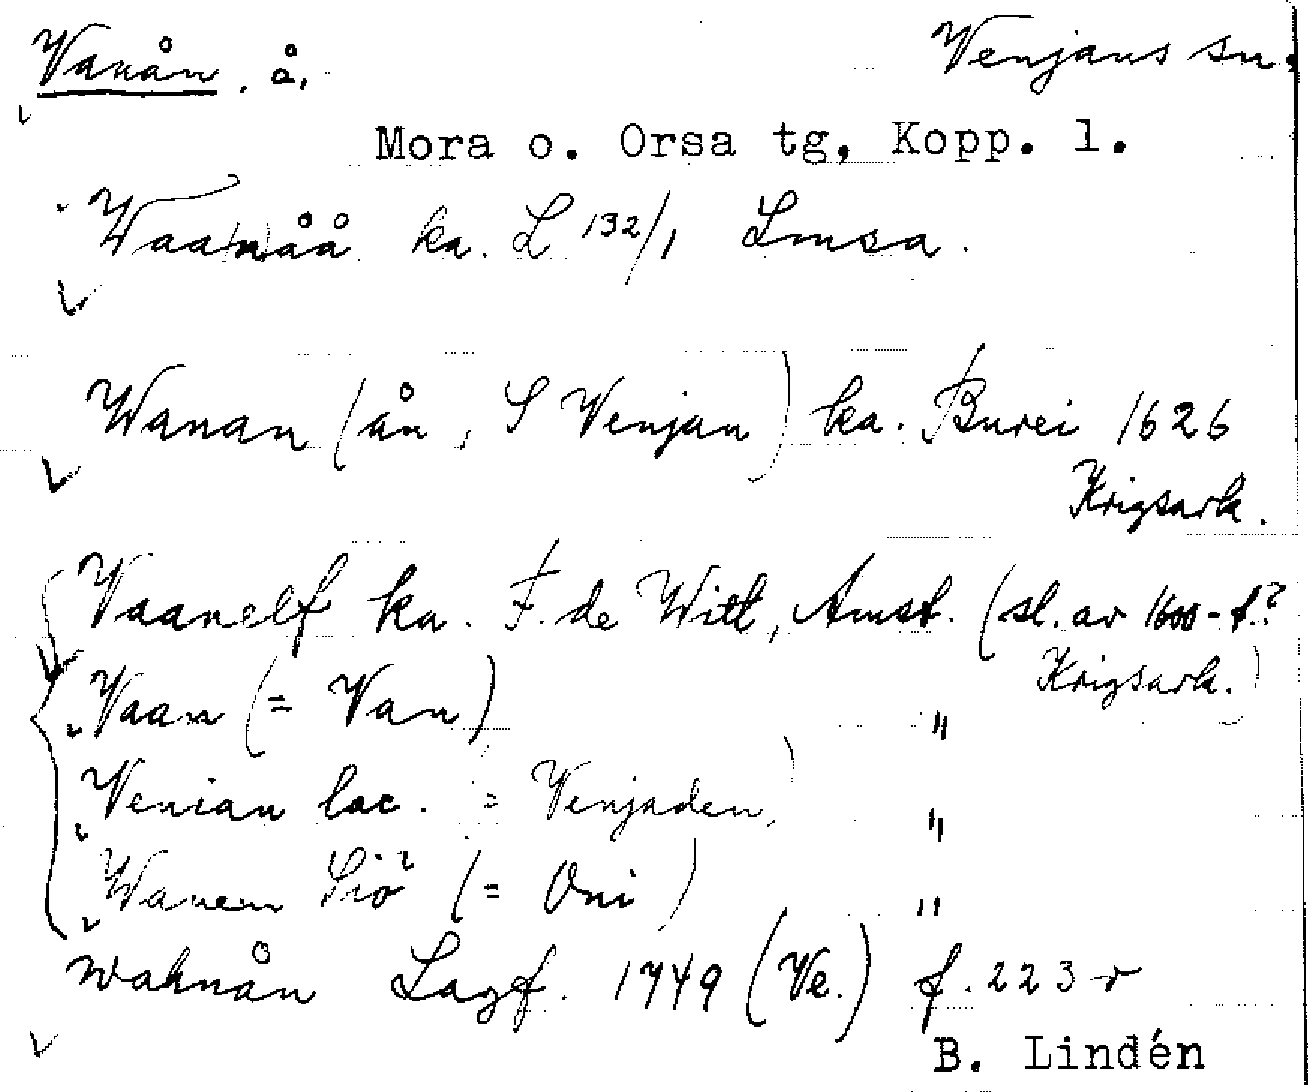 Vanån. å. Venjans sn.
Mora o. Orsa tg, Kopp. l.
Waa(n)åå ka. L 132/1 Lmsa.
Wanan (ån, S Venjan) ka. Burei 1626
Krigsark.
Vaanelf ka. F. de Witt, Amst. (sl. av 1600-t.?
Krigsark.)
Vaan (= Van) "
Venian lac. = Venjaden, ) "
Wanen Siö (= Oni) "
wahnån Lagf. 1749 (Ve.) f. 223 r
B. Lindén